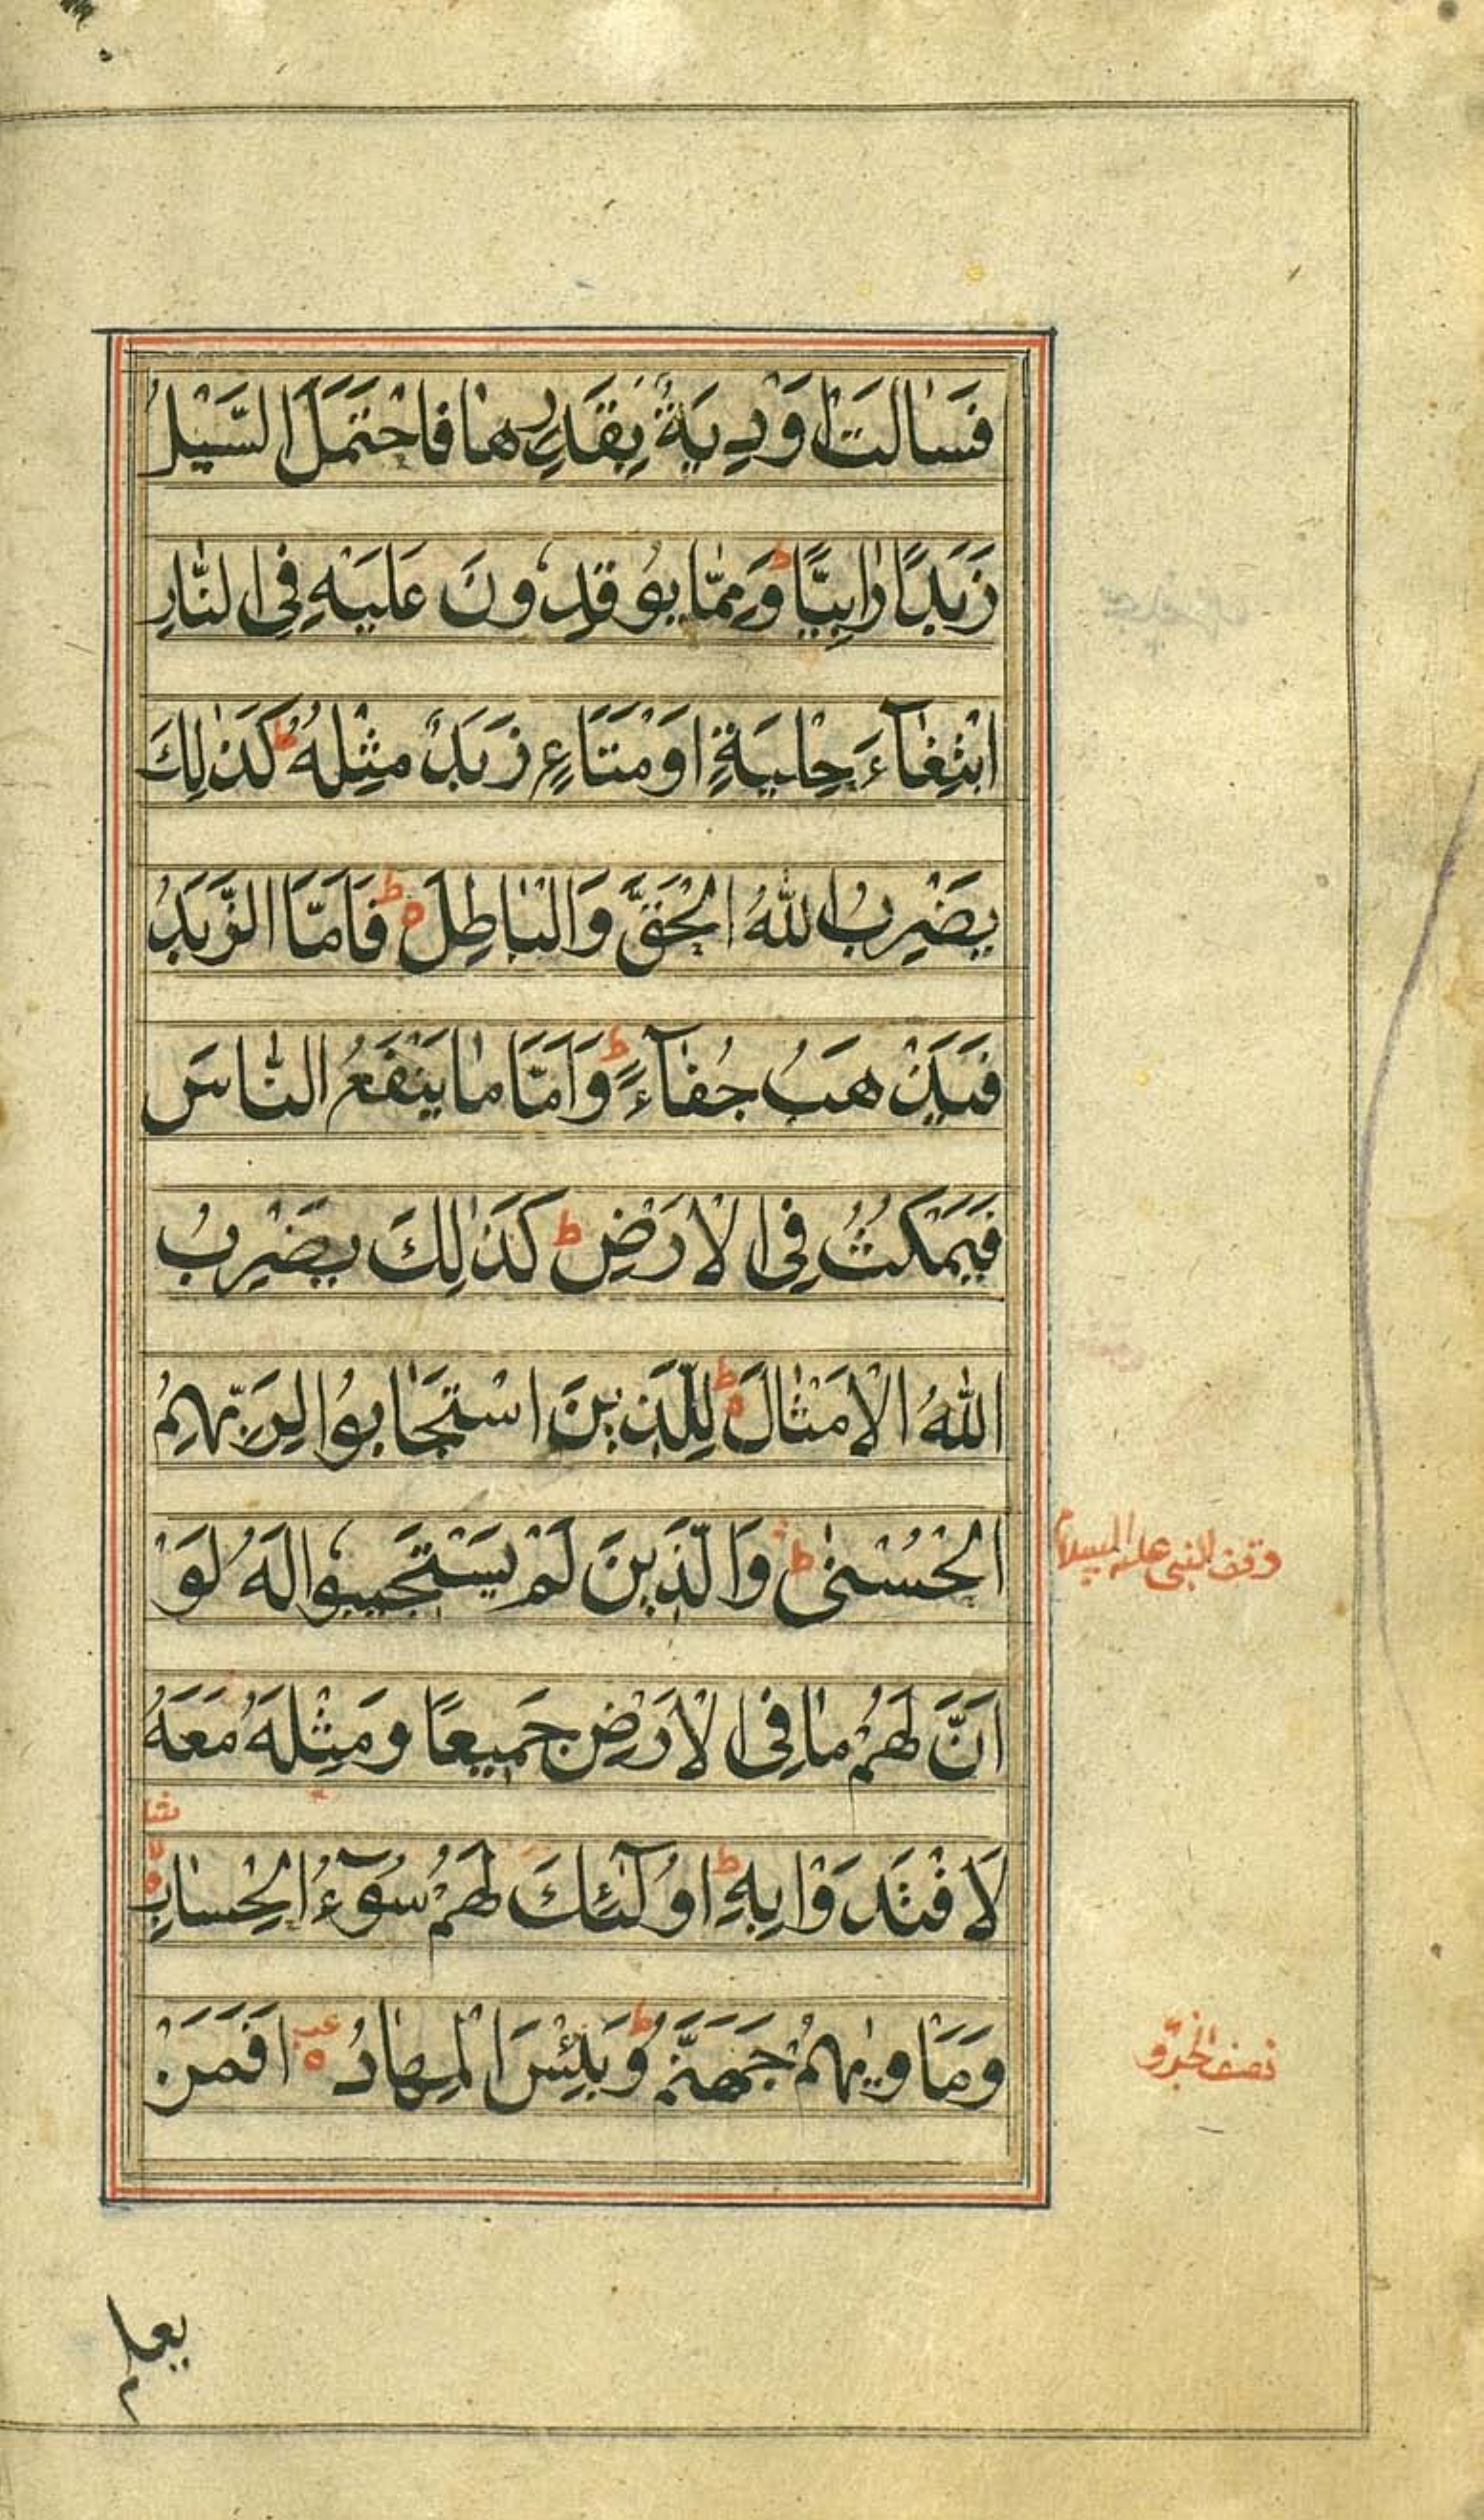 فَسَالَتْ اَوْدِيَةٌ بِقَدَرِهَا فَاحْتَمَلَ السَّيْلُ
زَبَدًا رَابِيًا ط وَمِمَّا يُوقِدُونَ عَلَيْهِ فِي النَّارِ
ابْتِغَآءَ حِلْيَةٍ اَوْ مَتَاعٍ زَبَدٌ مِثْلُهُ ط كَذٰلِكَ
يَضْرِبُ اللّٰهُ الْحَقَّ وَالْبَاطِلَ ط فَاَمَّا الزَّبَدُ
فَيَذْهَبُ جُفَآءً ط وَاَمَّا مَا يَنْفَعُ النَّاسَ
فَيَمْكُثُ فِي الْاَرْضِ ط كَذٰلِكَ يَضْرِبُ
اللّٰهُ الْاَمْثَالَ ط لِلَّذِينَ اسْتَجَابُوا لِرَبِّهِمُ
الْحُسْنٰى ط وَالَّذِينَ لَمْ يَسْتَجِيبُوا لَهُ لَوْ
وقف النبي عليه السلام
اَنَّ لَهُمْ مَا فِي الْاَرْضِ جَمِيعًا وَمِثْلَهُ مَعَهُ
لَافْتَدَوْا بِهِ ط اُولٰٓئِكَ لَهُمْ سُوٓءُ الْحِسَابِ
وَمَاْوٰيهُمْ جَهَنَّمُ ط وَبِئْسَ الْمِهَادُ اَفَمَنْ
نصف الجزو
يعلم